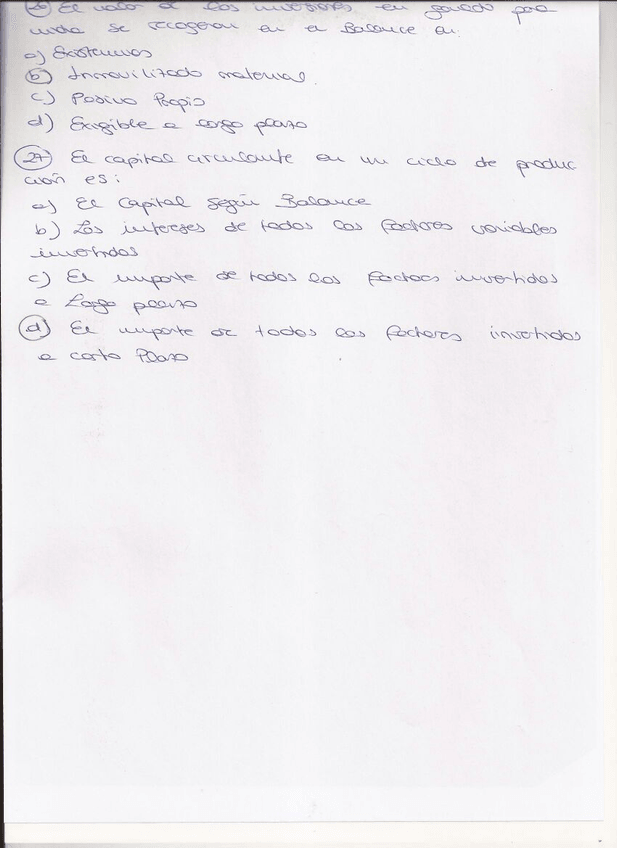 26 El valor de las inversiones en ganado para
vida se recogeran en el Balance en:
a) Existencias
b) Inmovilizado material.
c) Pasivo Propio
d) Exigible a largo plazo
27 El capital circulante en un ciclo de produc
ción es:
a) El Capital Según Balance
b) Los intereses de todos los factores variables
invertidos
c) El importe de todos los factores invertidos
a Largo plazo
d) El importe de todos los factores invertidos
a corto Plazo